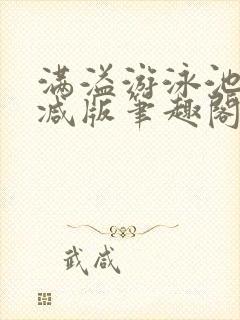 满溢游泳池
减版笔趣阁
武咸